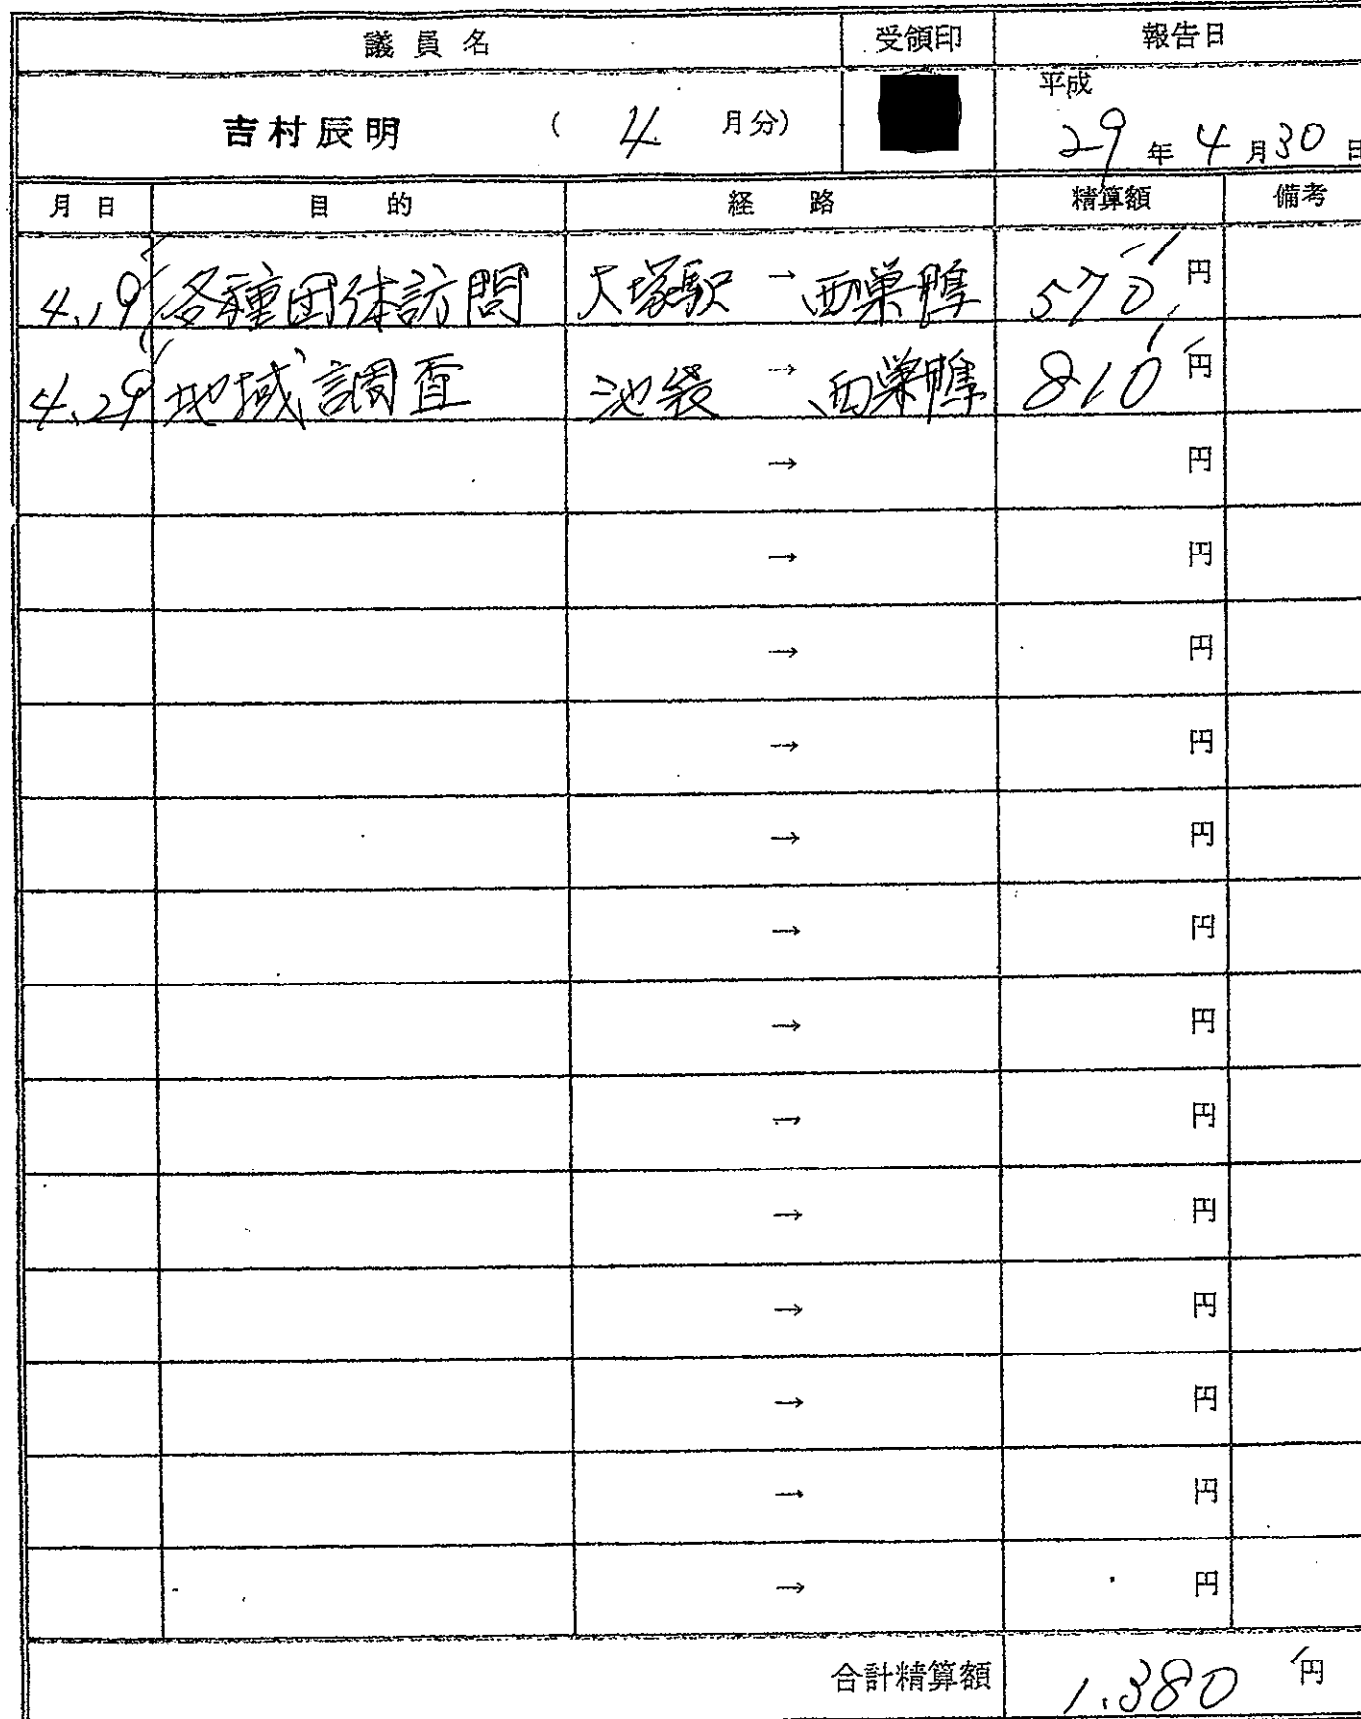 議員名 受領印 報告日
吉村辰明 ( 4 月分) 平成 29 年 4 月 30 日
月日 目的 経路 精算額 備考
4.19 各種団体訪問 大塚駅 → 西巣鴨 570 円
4.29 地域調査 池袋 → 西巣鴨 810 円
→ 円
→ 円
→ 円
→ 円
→ 円
→ 円
→ 円
→ 円
→ 円
→ 円
→ 円
→ 円
→ 円
合計精算額 1.380 円